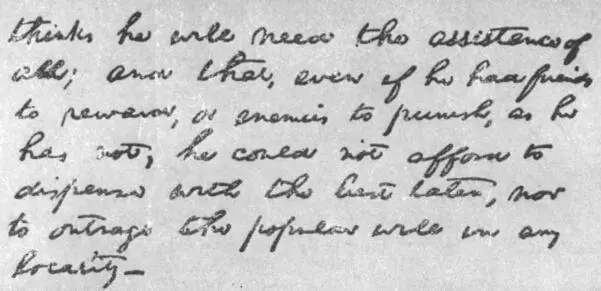 thinks he will need the assistance of
all; and that, even if he had friends
to reward, or enemies to punish, as he
has not, he could not afford to
dispense with the best talen, nor
to outrage the popular will in any
locality—